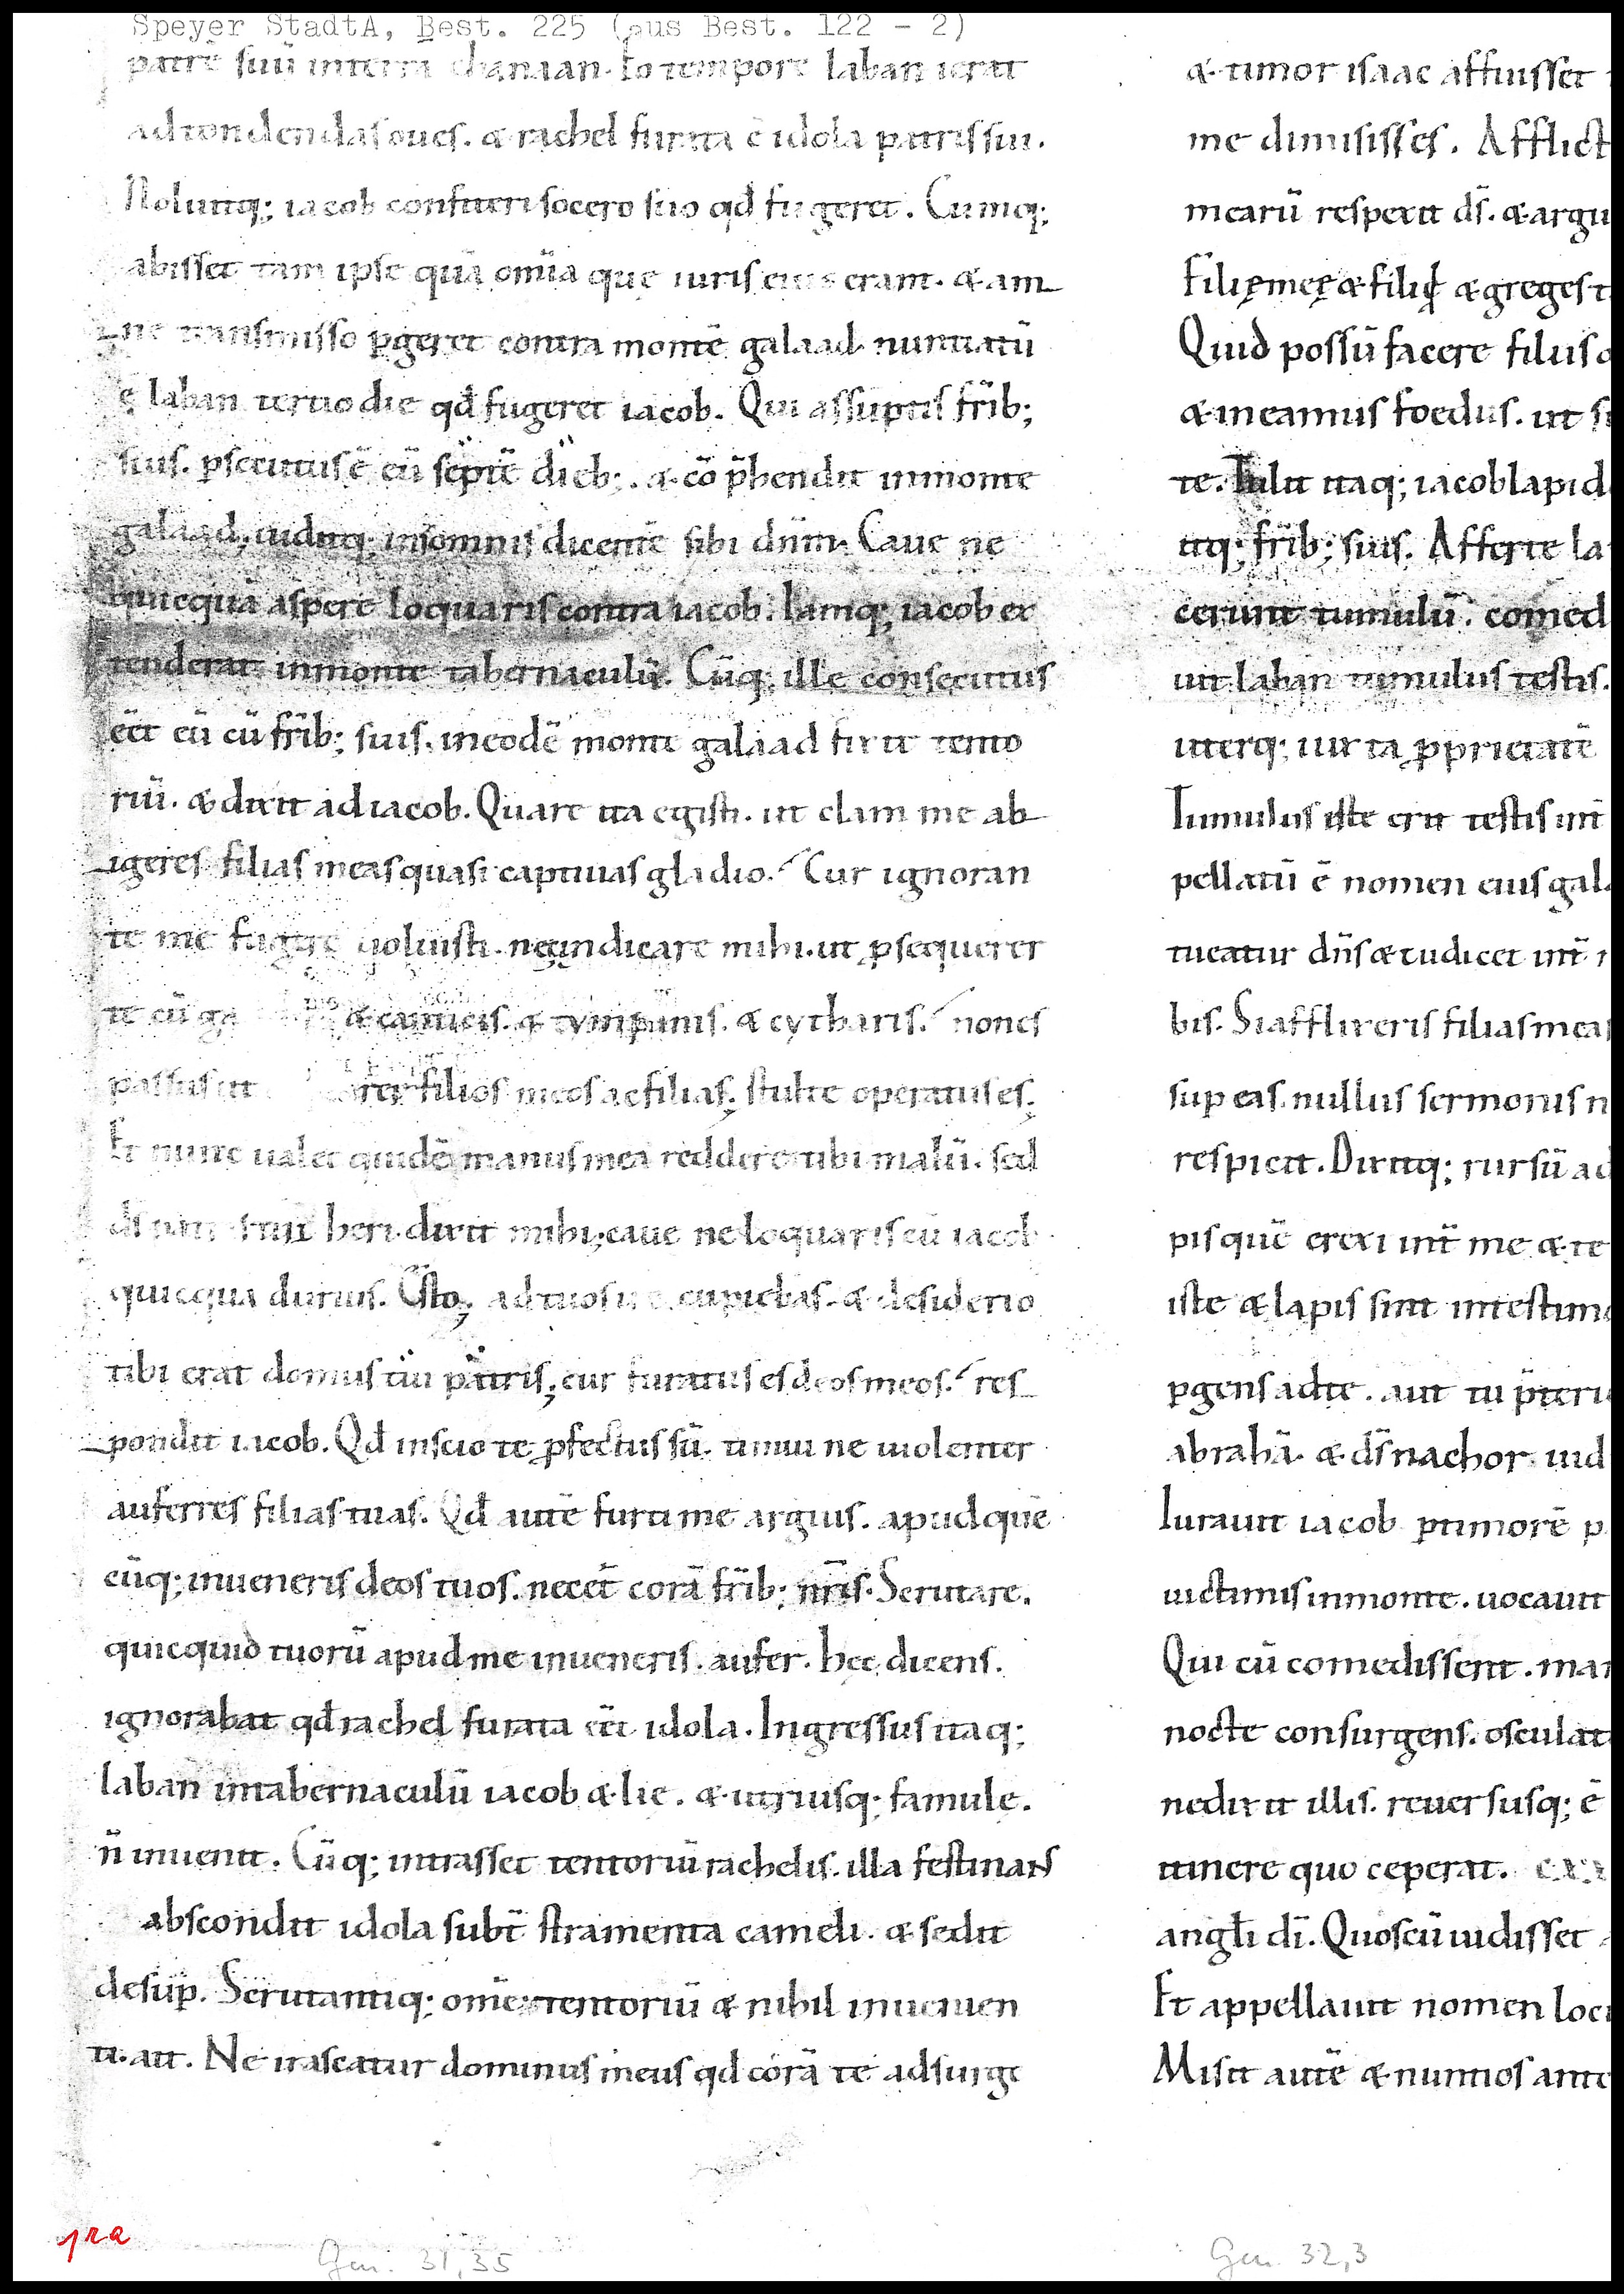 Speyer StadtA, Best. 225 (aus Best. 122 - 2)
patrē suū in terra chanaan. Eo tempore laban ierat
ad tondendas oues. & rachel furata ē idola patris sui.
Noluitq; iacob confiteri socero suo qđ fugeret. Cumq;
abisset tam ipse quā om̄ia que iuris eius erant. & am
ne transmisso ꝑgeret contra montē galaad. nuntiatū
ē laban tertio die qđ fugeret iacob. Qui assūptis fr̄ib;
suis. ꝑsecutus ē eū septē dieb;. & cō p̄hendit in monte
galaad. uiditq; in somnis dicentē sibi dn̄m. Caue ne
quicquā aspere loquaris contra iacob. Iamq; iacob ex
tenderat in monte tabernaculū. Cūq; ille consecutus
eēt eū cū fr̄ib; suis. in eodē monte galaad fixit tento
riū. & dixit ad iacob. Quare ita egisti. ut clam me ab
igeres filias meas quasi captiuas gladio. Cur ignoran
te me fugere uoluisti. nec indicare mihi. ut ꝓsequerer
te cū ga & canticis. & tympanis. & cytharis. non es
passus ut rer filios meos ac filias; stulte operatus es;
Et nunc ualet quidē manus mea reddere tibi malū. sed
ds̄ heri dixit mihi; caue ne loquaris cū iacob
quicquā durius. Esto; ad tuos ire cupiebas. & desiderio
tibi erat domus tui patris; cur furatus es deos meos. res
pondit iacob. Qđ inscio te ꝓfectus sū. timui ne uiolenter
auferres filias tuas. Qđ autē furti me arguis. apud quē
cūq; inueneris deos tuos. necet̄ corā fr̄ib; nr̄is. Scrutare.
quicquid tuorū apud me inueneris. aufer. hec dicens.
ignorabat qđ rachel furata eēt idola. Ingressus itaq;
laban in tabernaculū iacob & lie. & utriusq; famule.
n̄ inuenit. Cūq; intrasset tentoriū rachelis. illa festinans
abscondit idola subt̄ stramenta cameli. & sedit
desup̄. Scrutantiq; om̄e tentoriū & nihil inuenien
ti. ait. Ne irascatur dominus meus qđ corā te adsurge
& timor isaac affuisset
me dimisisses. Afflict
mearū respexit ds̄. & argu
Filię meę & filii & greges t
Quid possū facere filiis
& ineamus foedus. ut s
te. Tulit itaq; iacob lapid
itq; fr̄ib; suis. Afferte la
cerunt tumulū. comed
uit laban tumulus testis.
uterq; iuxta ꝓprietatē
Tumulus iste erit testis int̄
pellatū ē nomen eius gala
tueatur dn̄s & iudicet int̄
bis. Si afflixeris filias mea
sup eas. nullus sermonis n
respicit. Dixitq; rursū ad
pis quē erexi int̄ me & te
iste & lapis sint in testimo
ꝑgens ad te. aut tu p̄teri
abrahā. & ds̄ nachor. iud
Iurauit iacob ꝑ timorē p
uictimis in monte. uocauit
Qui cū comedissent. man
nocte consurgens. osculat
nedixit illis. reuersusq; ē
itinere quo ceperat.
angl̄i dī. Quos cū uidisset
Et appellauit nomen loci
Misit autē & nuntios ante
1ra
Gen. 31,35
Gen. 32,3